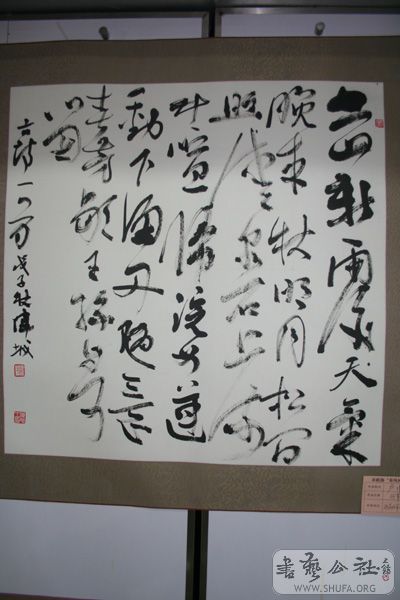 空山新雨后天氣
晚來秋明月松間
照清泉石上流
竹喧歸浣女蓮
動下漁舟隨意
春芳歇王孫自可
留
古詩一首戊子
書藝公社
WWW.SHUFA.ORG